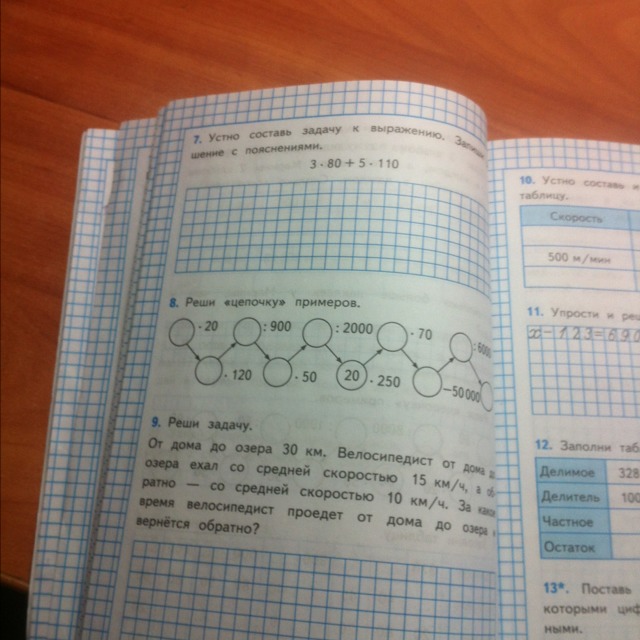 7. Устно составь задачу к выражению.
шение с пояснениями.
3 · 80 + 5 · 110
8. Реши «цепочку» примеров.
· 20 : 900 : 2000 · 70
· 120 · 50 20 · 250 −50 000
9. Реши задачу.
От дома до озера 30 км. Велосипедист от дома
озера ехал со средней скоростью 15 км/ч, а
ратно — со средней скоростью 10 км/ч. За
время велосипедист проедет от дома до озера
вернётся обратно?
10. Устно составь и
таблицу.
Скорость
500 м/мин
11. Упрости и
12. Заполни
Делимое 328
Делитель 100
Частное
Остаток
13*. Поставь
которыми
ными.